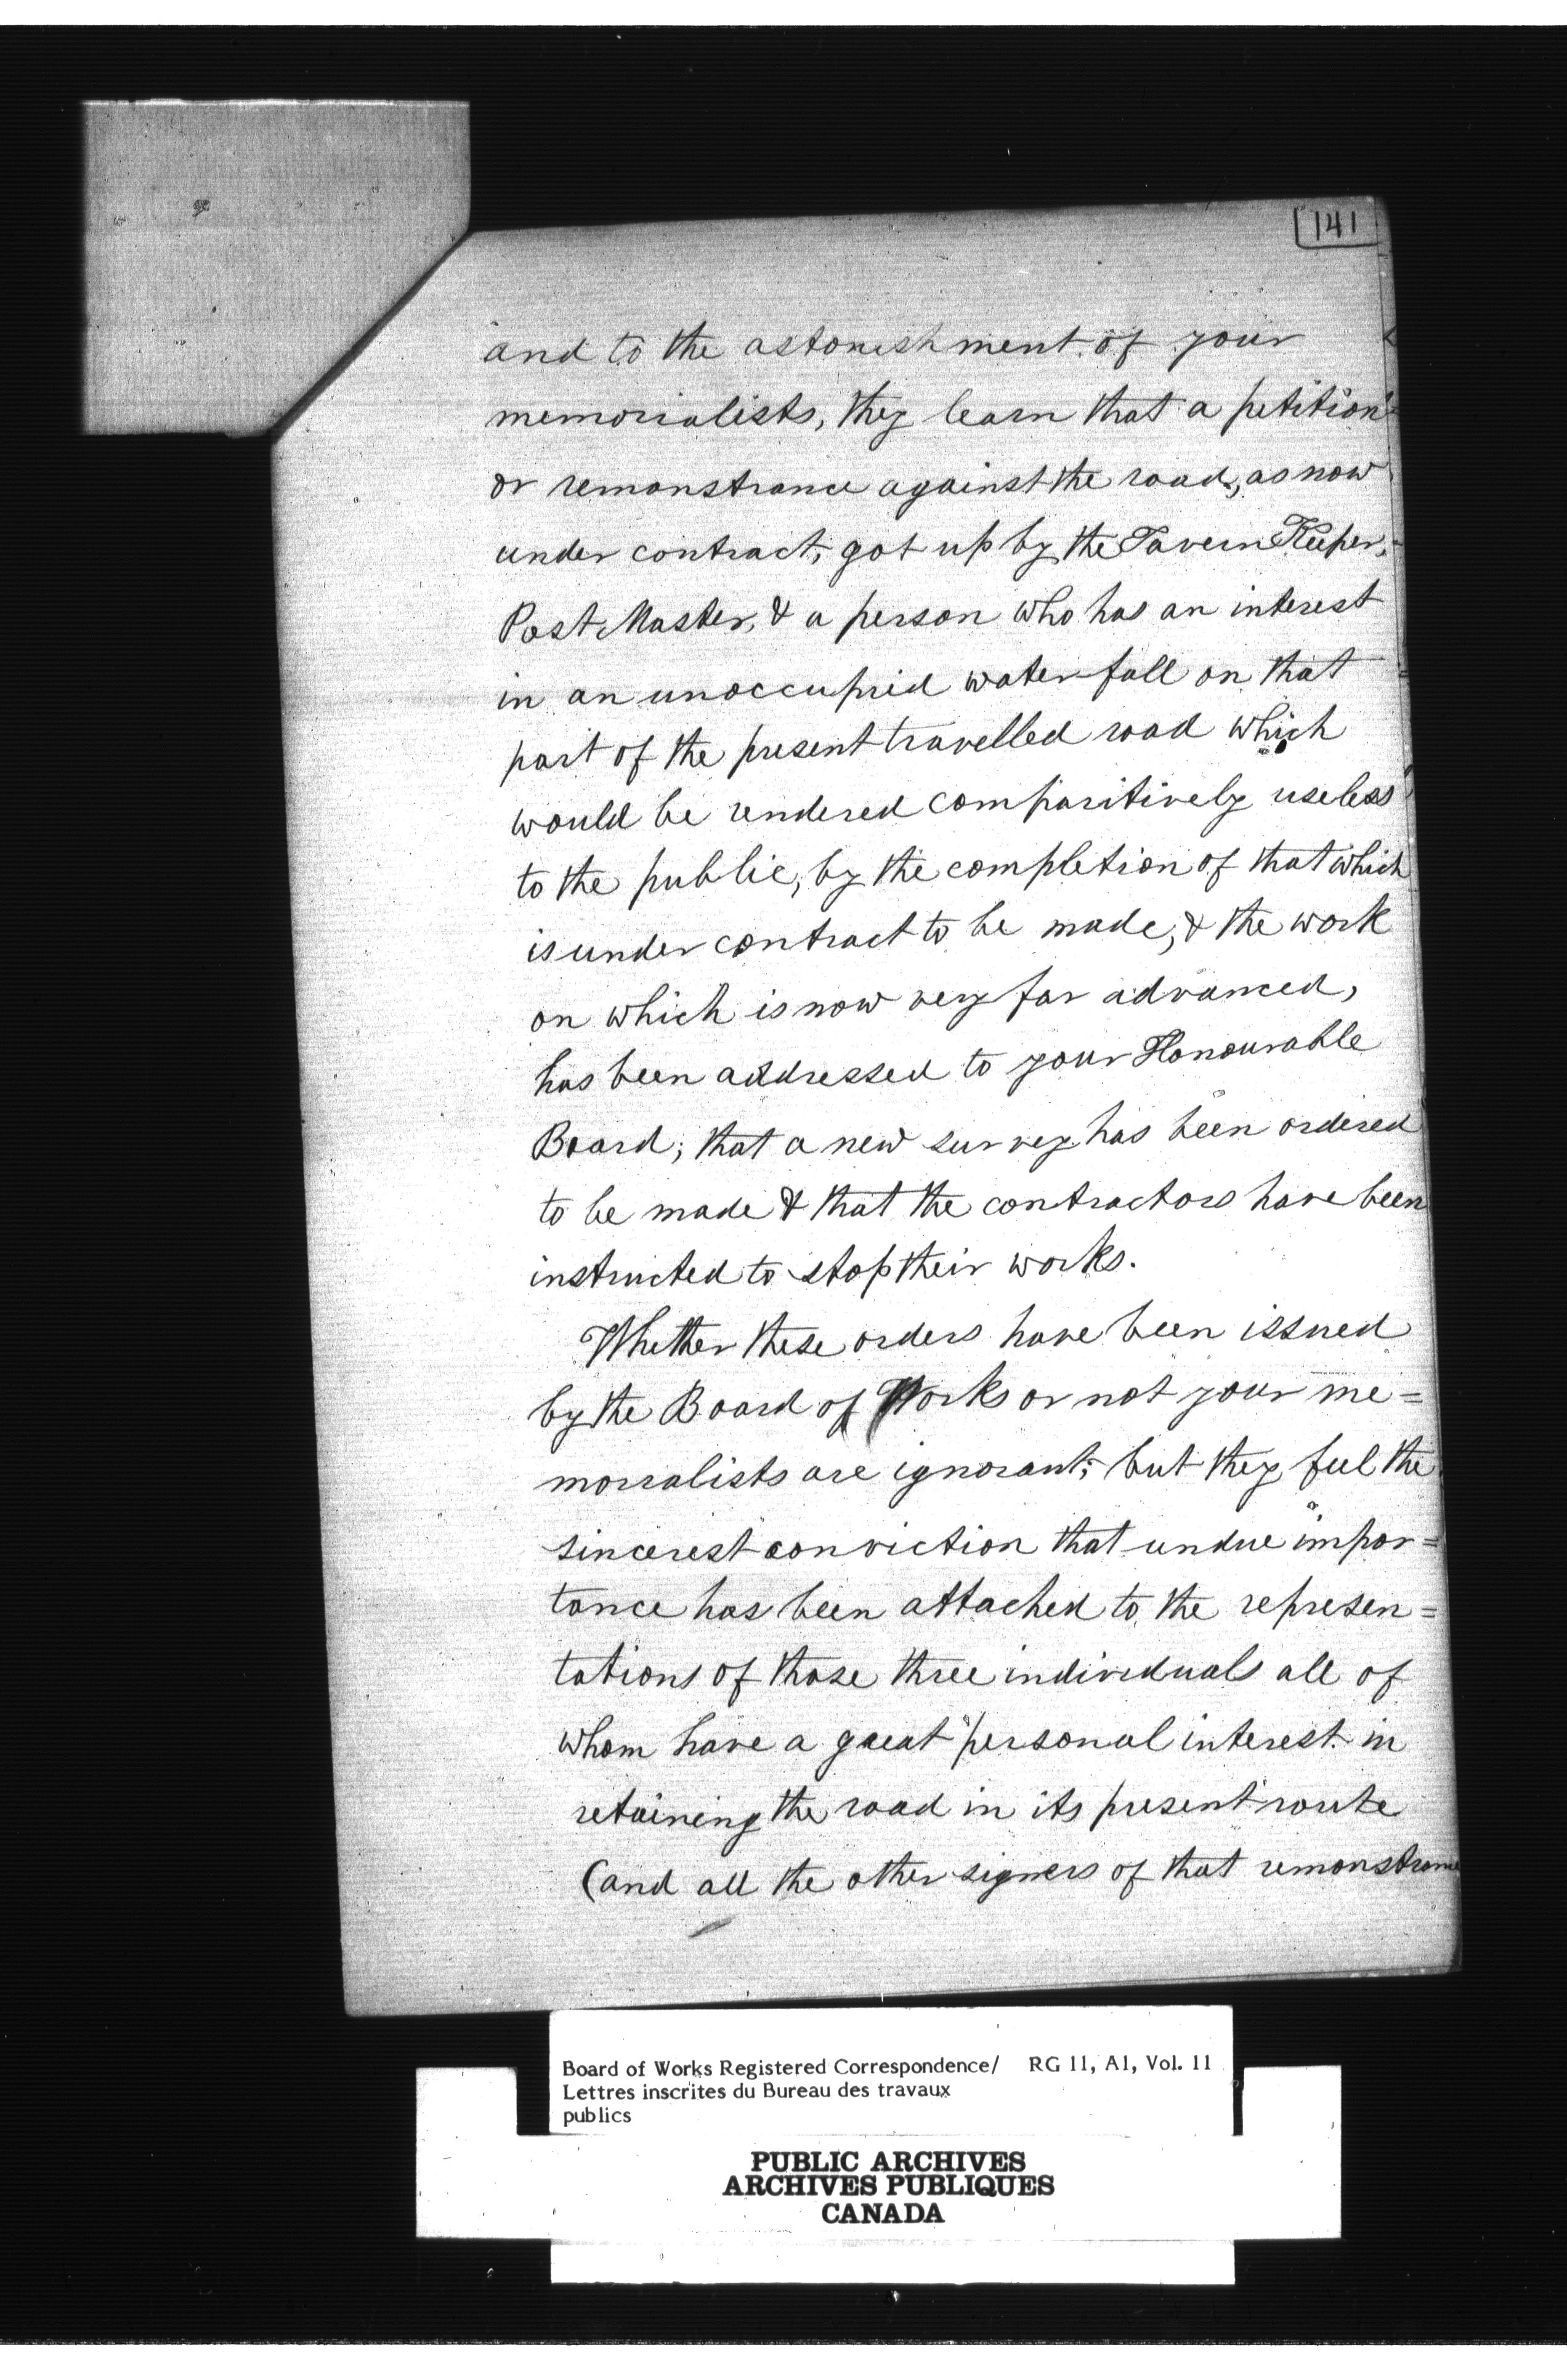 141
and to the astonishment of your
memorialists, they learn that a petition
or remonstrance against the road, as now
under contract, got up by the Tavern Keeper,
Post Master, & a person who has an interest
in an unoccupied water fall on that
part of the present travelled road which
would be rendered comparitively useless
to the public, by the completion of that which
is under contract to be made, & the work
on which is now very far advanced,
has been addressed to your Honourable
Board; that a new survey has been ordered
to be made & that the contractors have been
instructed to stop their works.
Whether these orders have been issued
by the Board of Works or not your me=
morialists are ignorant; but they feel the
sincerest conviction that undue impor=
tance has been attached to the represen=
tations of those three individuals all of
whom have a great personal interest in
retaining the road in its present route
(and all the other signers of that remonstrance
Board of Works Registered Correspondence/ RG 11, A1, Vol. 11
Lettres inscrites du Bureau des travaux
publics
PUBLIC ARCHIVES
ARCHIVES PUBLIQUES
CANADA